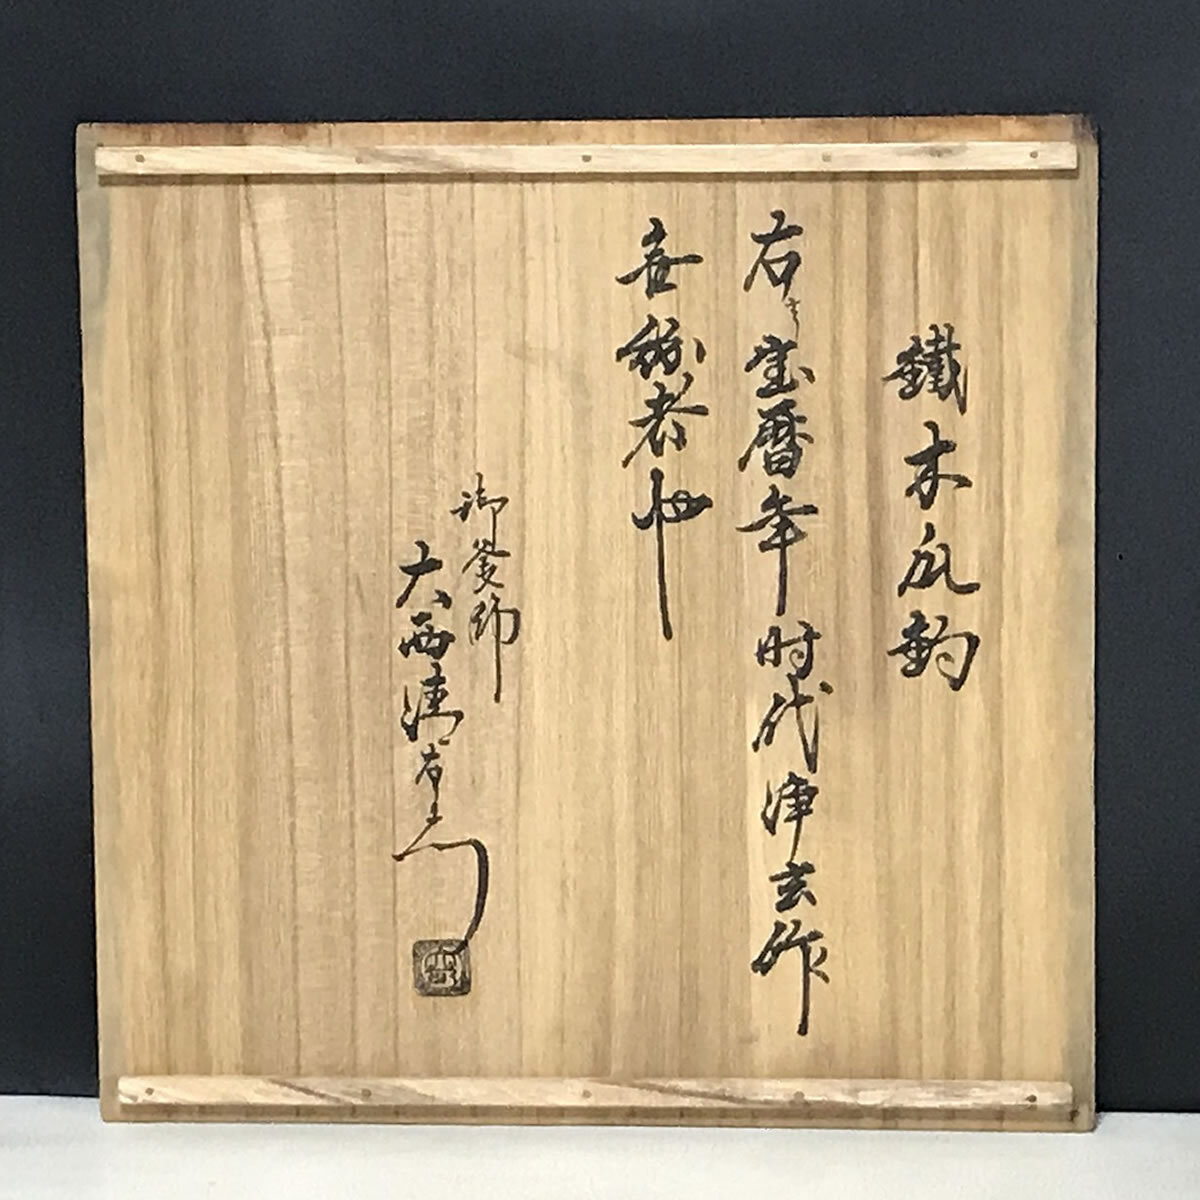 鐵木瓜釣
右ハ宝暦年時代浄玄作
無紛者也
御釜師
大西清右衛門